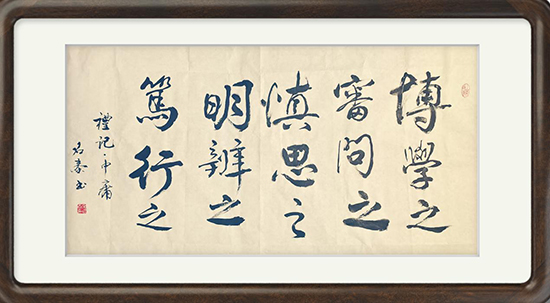 博學之
審問之
慎思之
明辨之
篤行之
禮記中庸